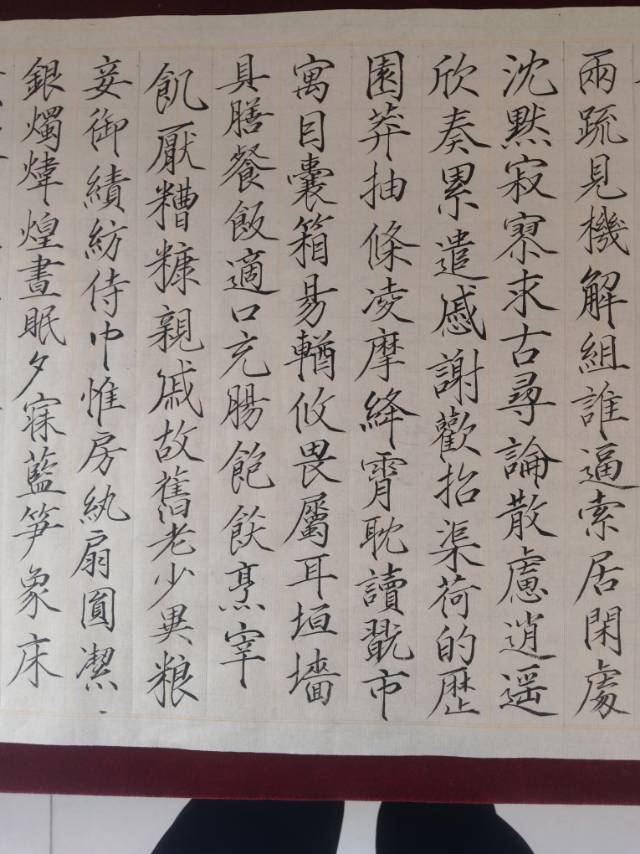 兩疏見機解組誰逼索居閑處
沈默寂寥求古尋論散慮逍遥
欣奏累遣慼謝歡招渠荷的歷
園莽抽條凌摩絳霄耽讀翫市
寓目囊箱易輶攸畏屬耳垣墻
具膳餐飯適口充腸飽飫烹宰
飢厭糟糠親戚故舊老少異粮
妾御績紡侍巾惟房紈扇圓潔
銀燭煒煌晝眠夕寐藍笋象床